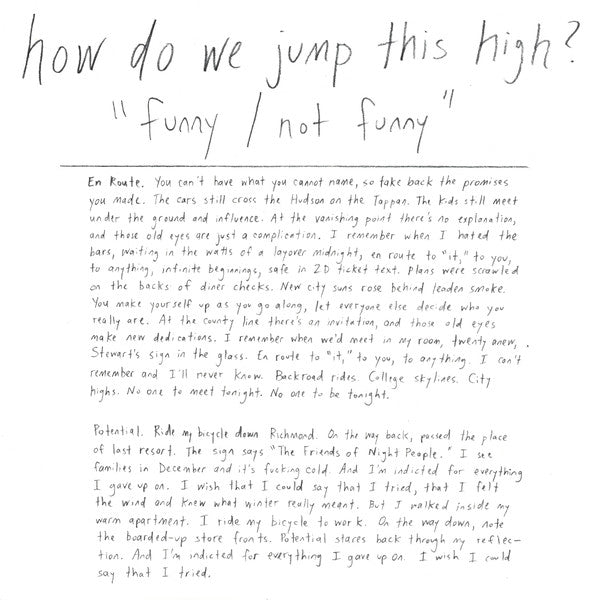 how do we jump this high?
"funny / not funny"
En Route. You can't have what you cannot name, so take back the promises
you made. The cars still cross the Hudson on the Tappan. The kids still meet
under the ground and influence. At the vanishing point there's no explanation,
and those old eyes are just a complication. I remember when I hated the
bars, waiting in the watts of a layover midnight, en route to "it," to you,
to anything, infinite beginnings, safe in 2D ticket text. Plans were scrawled
on the backs of diner checks. New city suns rose behind leaden smoke.
You make yourself up as you go along, let everyone else decide who you
really are. At the county line there's an invitation, and those old eyes
make new dedications. I remember when we'd meet in my room, twenty anew,
Stewart's sign in the glass. En route to "it," to you, to anything. I can't
remember and I'll never know. Backroad rides. College skylines. City
highs. No one to meet tonight. No one to be tonight.
Potential. Ride my bicycle down Richmond. On the way back, passed the place
of last resort. The sign says "The Friends of Night People." I see
families in December and it's fucking cold. And I'm indicted for everything
I gave up on. I wish that I could say that I tried, that I felt
the wind and knew what winter really meant. But I walked inside my
warm apartment. I ride my bicycle to work. On the way down, note
the boarded-up store fronts. Potential stares back through my reflec-
tion. And I'm indicted for everything I gave up on. I wish I could
say that I tried.